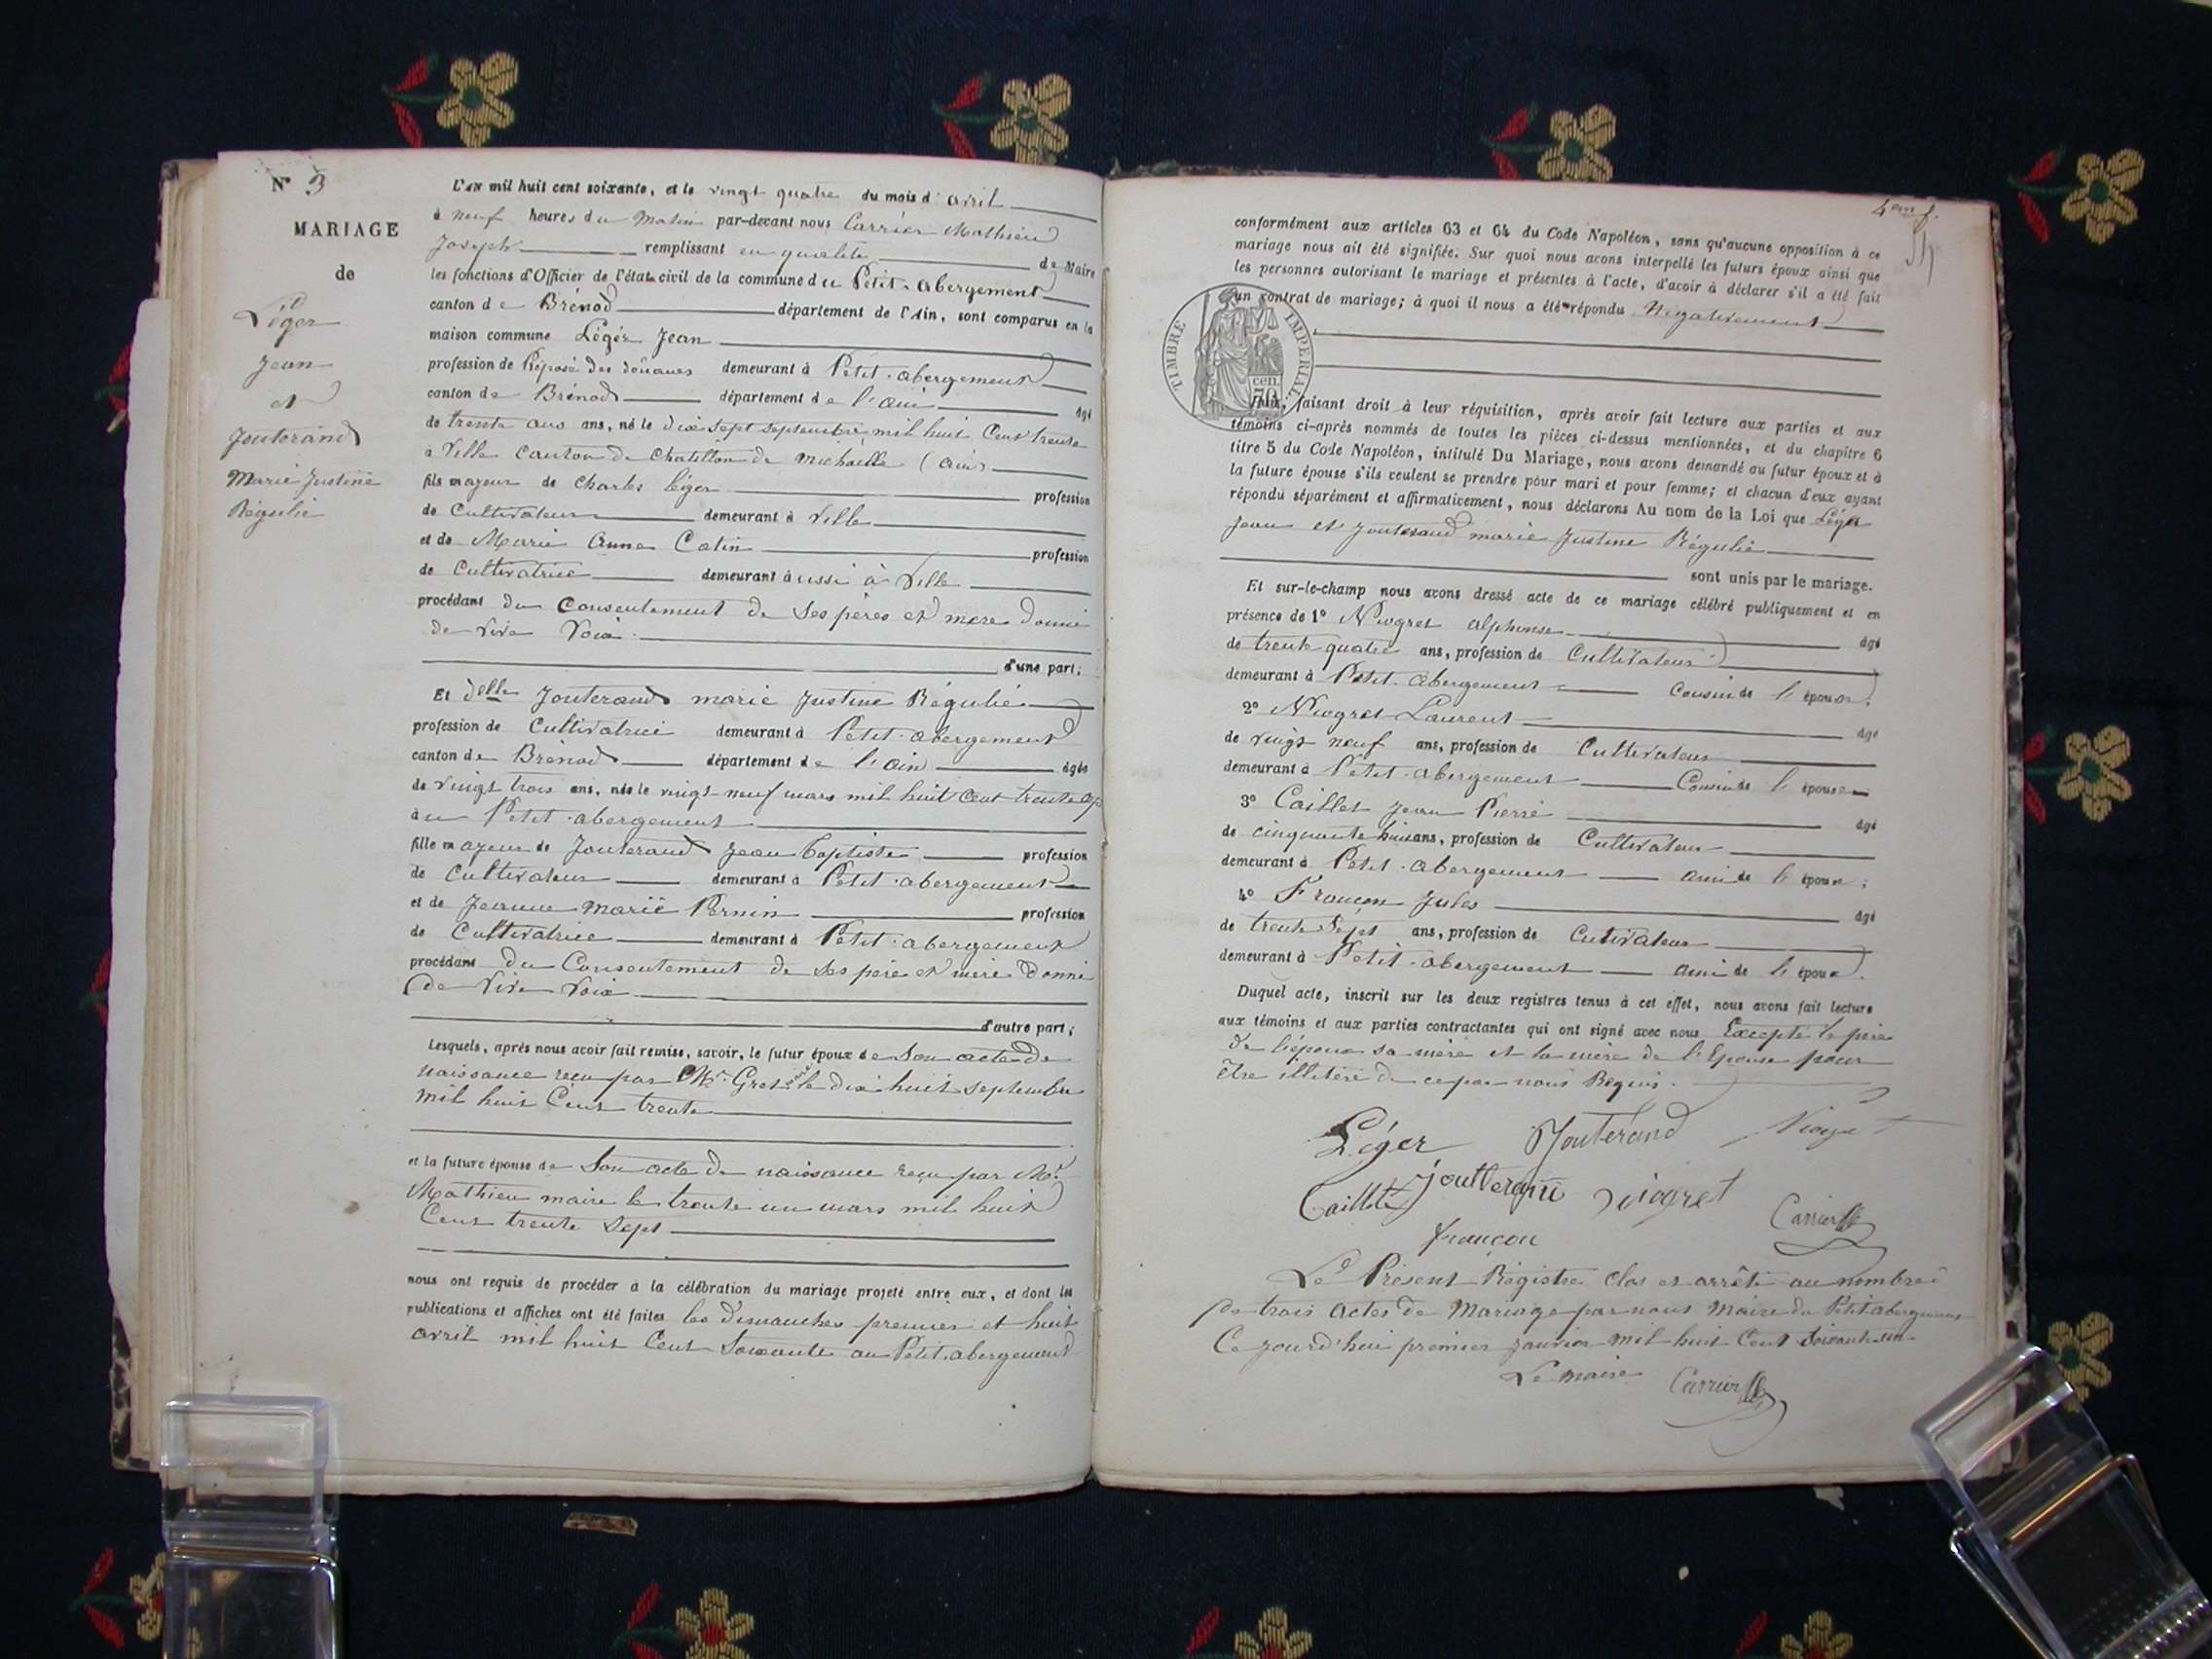 N° 3
MARIAGE
de
Léger
Jean
et
Jouterand
Marie Justine
Régulie
L'an mil huit cent soixante, et le vingt quatre du mois d'avril
à neuf heures du Matin par-devant nous Carrier Mathieu
Joseph remplissant en qualité de Maire
les fonctions d'Officier de l'état civil de la commune du Petit-abergement
canton de Brénod département de l'Ain, sont comparus en la
maison commune Léger Jean
profession de Préposé des douanes demeurant à Petit-abergement
canton de Brénod département de l'ain âgé
de trente ans ans, né le dix sept septembre mil huit Cent trente
à Ville Canton de Chatillon de Michaille (ain)
fils majeur de Charles léger profession
de Cultivateur demeurant à Ville
et de Marie Anne Catin profession
de Cultivatrice demeurant aussi à Ville
procédant du Consentement de ses pères et mère donné
de vive Voix
d'une part;
Et delle Jouterand marie Justine Régulie
profession de Cultivatrice demeurant à Petit-abergement
canton de Brénod département de l'ain âgée
de vingt trois ans, née le vingt neuf mars mil huit Cent trente sept
au Petit-abergement
fille majeur de Jouterand Jean Baptiste profession
de Cultivateur demeurant à Petit-abergement
et de Jeanne Marie Pernin profession
de Cultivatrice demeurant à Petit-abergement
procédant du Consentement de ses père et mère donné
de Vive Voix
d'autre part;
Lesquels, après nous avoir fait remise, savoir, le futur époux de Son acte de
naissance reçu par Mr. Gret maire le dix huit septembre
mil huit Cent trente
et la future épouse de Son acte de naissance reçu par Mr
Mathieu maire le trente un mars mil huit
Cent trente Sept
nous ont requis de procéder à la célébration du mariage projeté entre eux, et dont les
publications et affiches ont été faites les dimanches premier et huit
avril mil huit Cent Soixante au Petit-abergement
4em f.
conformément aux articles 63 et 64 du Code Napoléon, sans qu'aucune opposition à ce
mariage nous ait été signifiée. Sur quoi nous avons interpellé les futurs époux ainsi que
les personnes autorisant le mariage et présentes à l'acte, d'avoir à déclarer s'il a été fait
un contrat de mariage; à quoi il nous a été répondu Négativement
TIMBRE IMPERIAL
cen.
70
Nous, faisant droit à leur réquisition, après avoir fait lecture aux parties et aux
témoins ci-après nommés de toutes les pièces ci-dessus mentionnées, et du chapitre 6
titre 5 du Code Napoléon, intitulé Du Mariage, nous avons demandé au futur époux et à
la future épouse s'ils veulent se prendre pour mari et pour femme; et chacun d'eux ayant
répondu séparément et affirmativement, nous déclarons Au nom de la Loi que Léger
Jean et Jouterand marie Justine Régulie
sont unis par le mariage.
Et sur-le-champ nous avons dressé acte de ce mariage célébré publiquement et en
présence de 1° Niogret alphonse âgé
de trente quatre ans, profession de Cultivateur
demeurant à Petit-abergement Cousin de l'épouse.
2° Niogret Laurent âgé
de vingt neuf ans, profession de Cultivateur
demeurant à Petit-abergement Cousin de l'épouse
3° Caillet Jean Pierre âgé
de cinquante huit ans, profession de Cultivateur
demeurant à Petit-abergement ami de l'époux;
4° Françon Jules âgé
de trente Sept ans, profession de Cutivateur
demeurant à Petit-abergement ami de l'époux.
Duquel acte, inscrit sur les deux registres tenus à cet effet, nous avons fait lecture
aux témoins et aux parties contractantes qui ont signé avec nous Excepté le père
de l'époux sa mère et la mère de l'Epouse pour
être illitéré de ce par nous Requis.
Léger Jouterand Niogret
Caillet Joutterand Niogret Carrier
françon
Le Présent Régistre Clos et arrêté au nombre
de trois actes de Mariage par nous Maire du Petit abergement
Ce jourd'hui premier Janvier mil huit Cent Soixante un
Le Maire Carrier